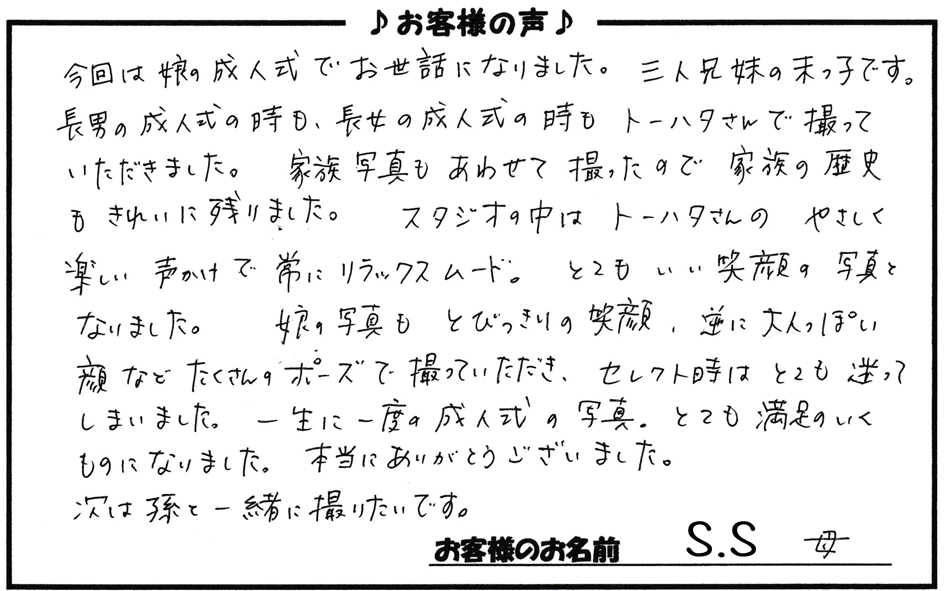 ♪お客様の声♪
今回は娘の成人式でお世話になりました。 三人兄妹の末っ子です。
長男の成人式の時も、長女の成人式の時もトーハタさんで撮って
いただきました。 家族写真もあわせて撮ったので家族の歴史
もきれいに残りました。 スタジオの中はトーハタさんの やさしく
楽しい声かけで常にリラックスムード。 とてもいい笑顔の写真と
なりました。 娘の写真もとびっきりの笑顔、逆に大人っぽい
顔などたくさんのポーズで撮っていただき、セレクト時はとても迷って
しまいました。一生に一度の成人式の写真。とても満足のいく
ものになりました。 本当にありがとうございました。
次は孫と一緒に撮りたいです。
お客様のお名前 S.S 母